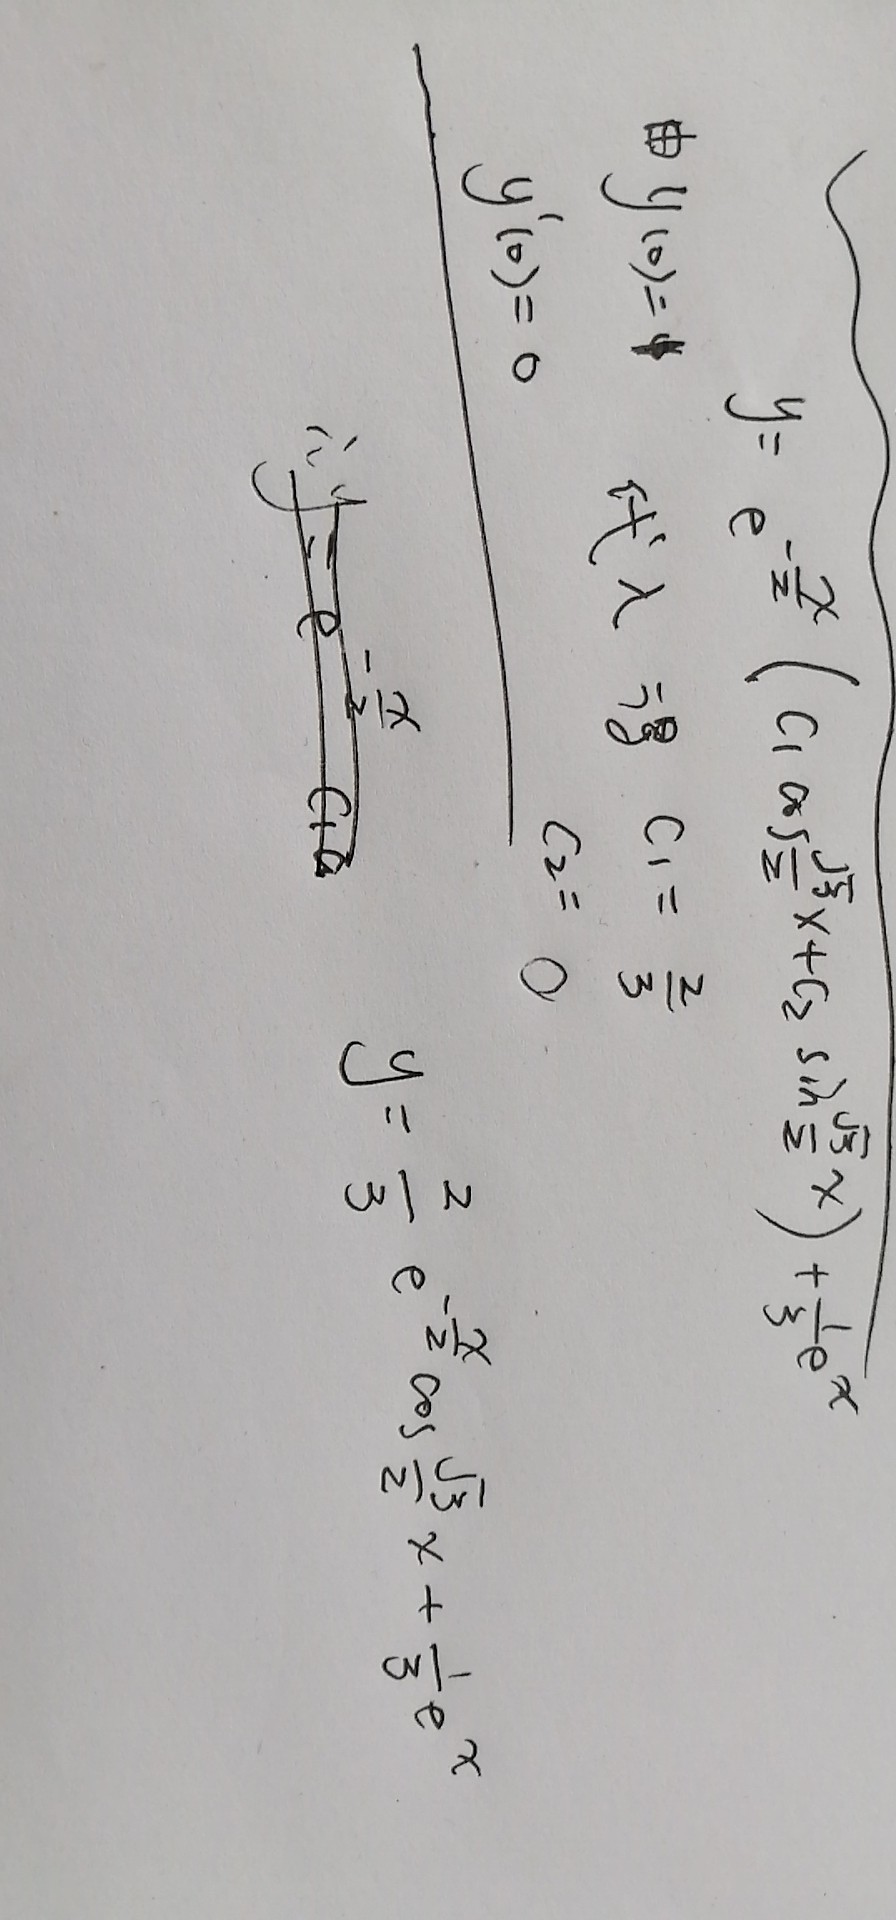 y = e^{-\frac{x}{2}} ( C₁ cos \frac{\sqrt{3}}{2} x + C₂ sin \frac{\sqrt{3}}{2} x ) + \frac{1}{3} e^x
由 y(0) = 1 代入 得 C₁ = \frac{2}{3}
y'(0) = 0 C₂ = 0
y = \frac{2}{3} e^{-\frac{x}{2}} cos \frac{\sqrt{3}}{2} x + \frac{1}{3} e^x